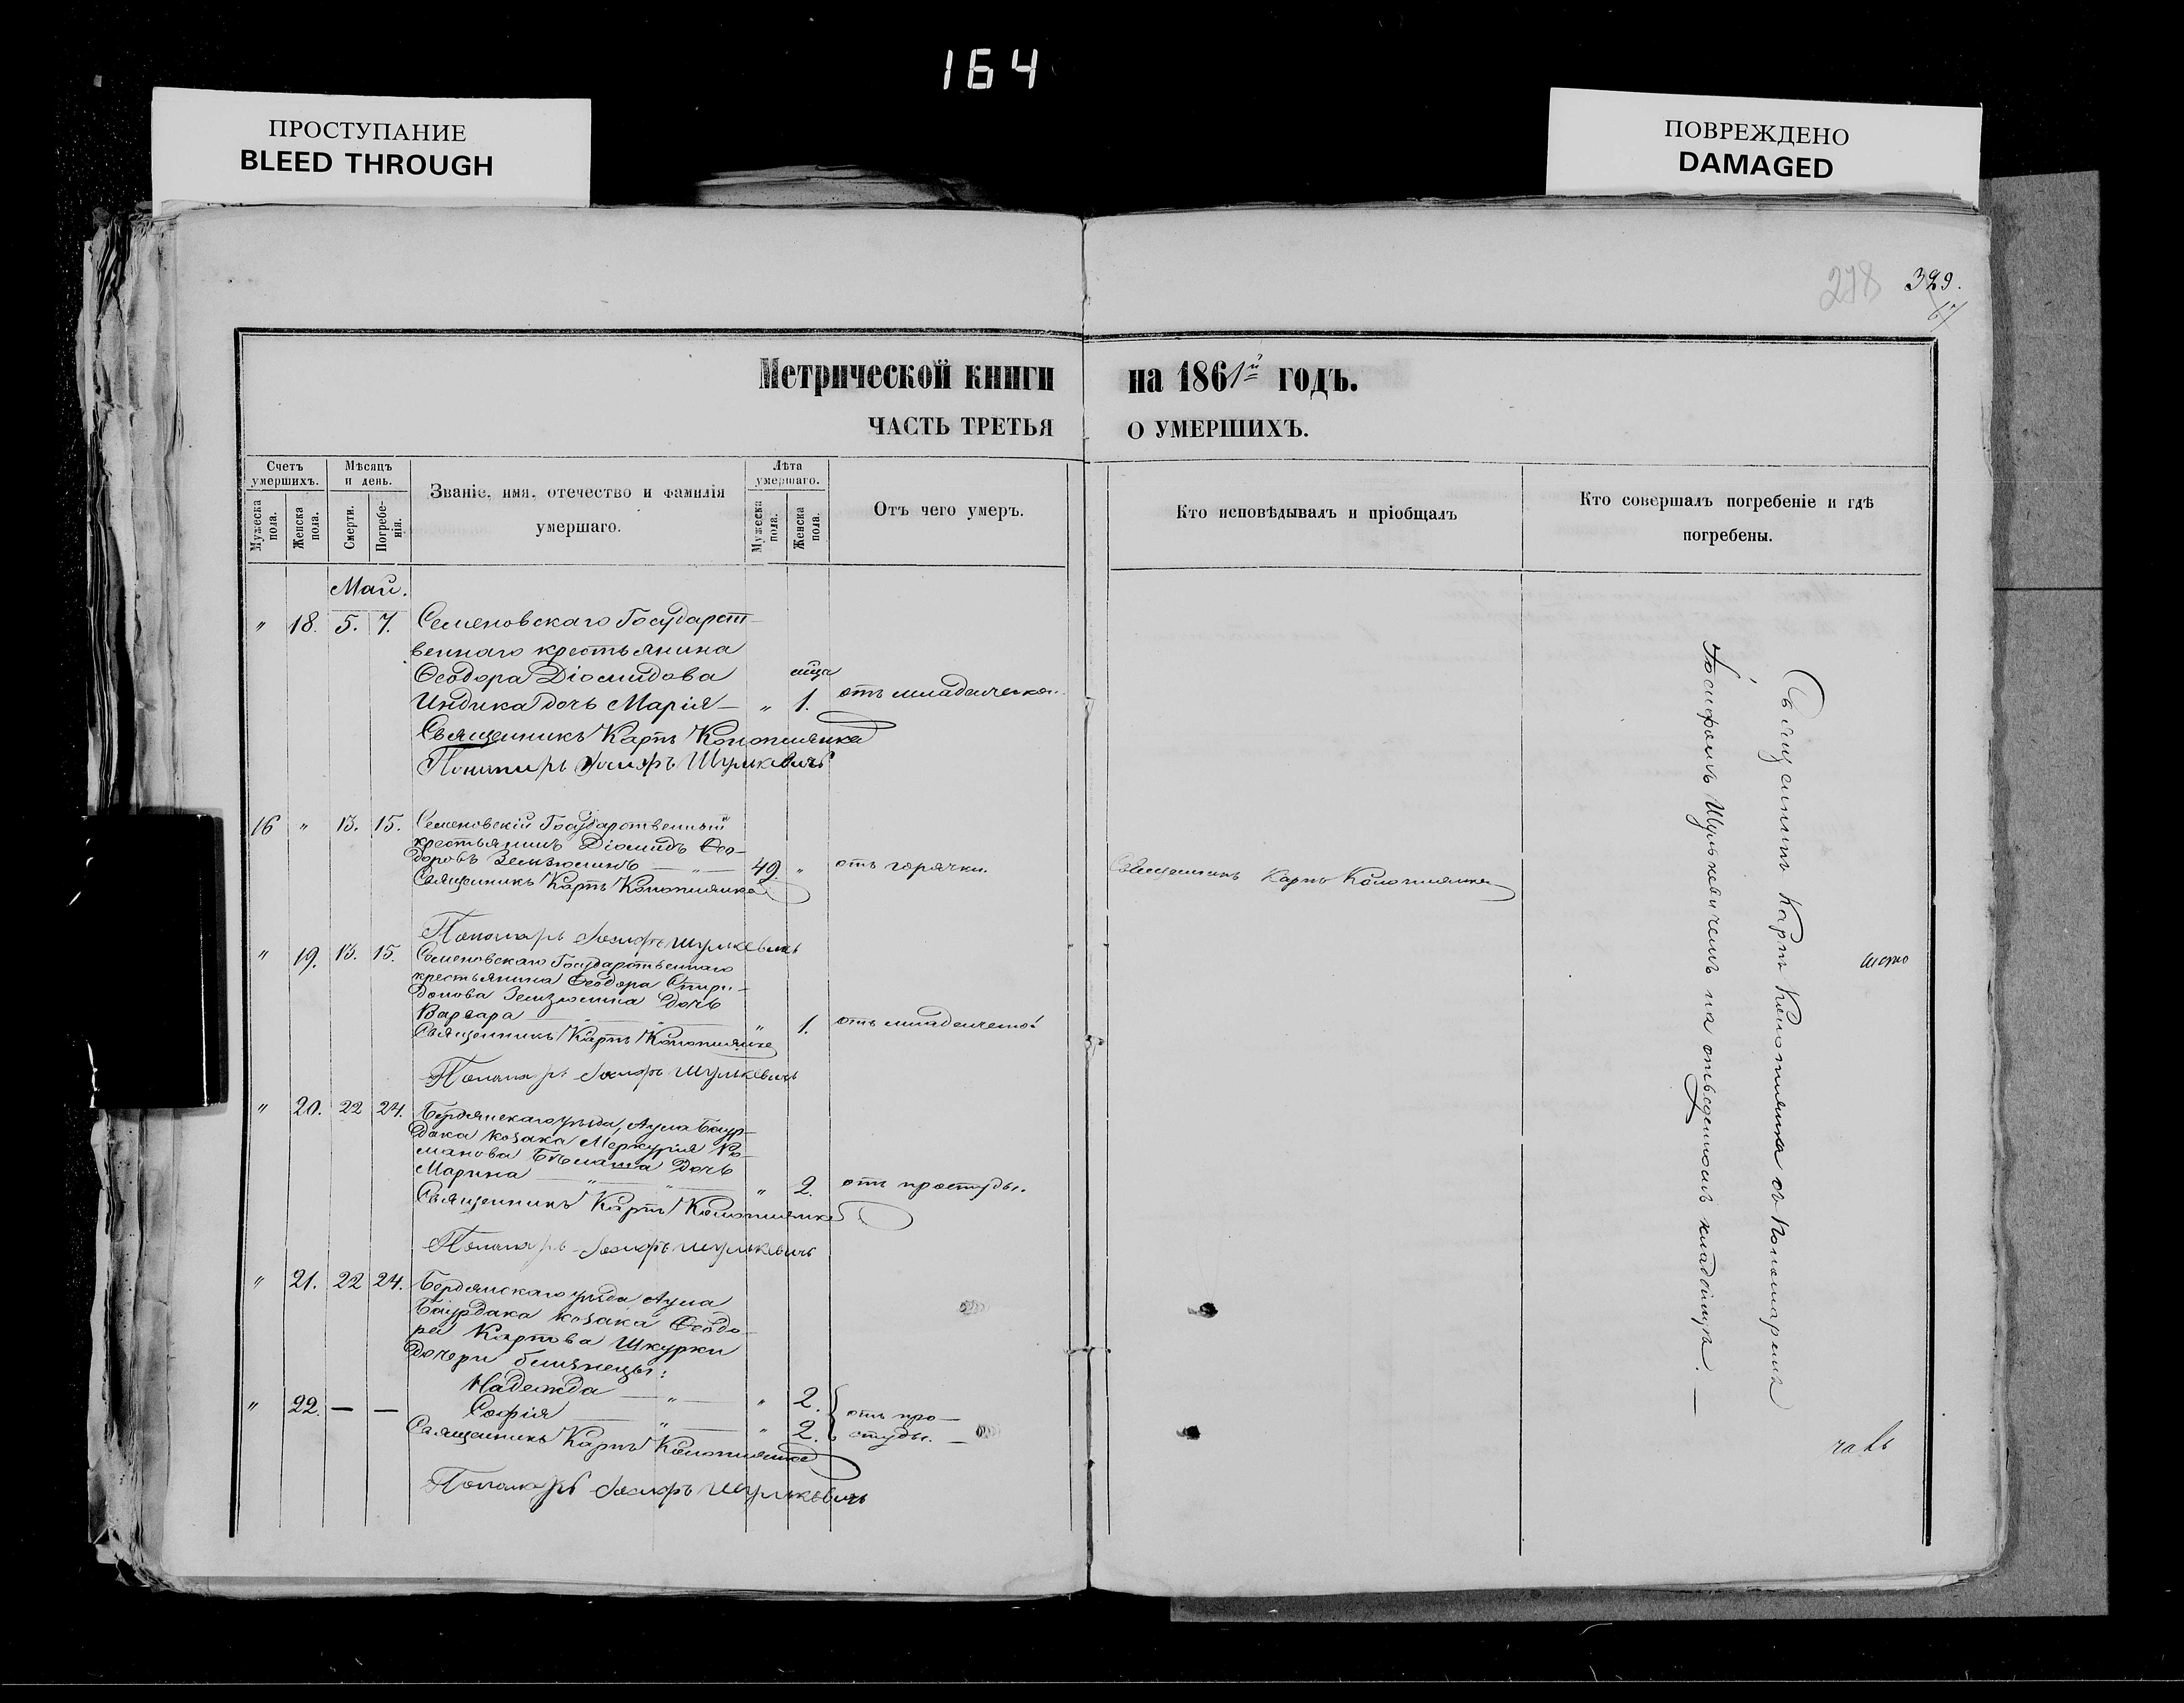 164
ПРОСТУПАНИЕ
BLEED THROUGH
ПОВРЕЖДЕНО
DAMAGED
278 329.
67
Метрической книги на 1861й годъ.
ЧАСТЬ ТРЕТЬЯ О УМЕРШИХЪ.
Счетъ умершихъ.
Мужеска пола.
Женска пола.
Мѣсяцъ и день.
Смерти.
Погребенія.
Званіе, имя, отечество и фамилія
умершаго.
Лѣта умершаго.
Мужеска пола.
Женска пола.
Отъ чего умеръ.
Кто исповѣдывалъ и пріобщалъ
Кто совершалъ погребеніе и гдѣ
погребены.
Май.
" 18. 5. 7. Семеновскаго Государст
веннаго крестьянина
Ѳеодора Діомидова
Индика дочь Марія — " 1. отъ младенческой
Священникъ Карпъ Коломиянка
Пономарь Іосифъ Шулькевичъ
16 " 13. 15. Семеновскій Государственный
крестьянинъ Діомидъ Ѳео-
доровъ Земзюлинъ — " — 49. " отъ горячки.
Священникъ Карпъ Коломиянка
Священникъ Карпъ Коломиянка
Пономарь Іосифъ Шулькевичъ
" 19. 13. 15. Семеновскаго Государственнаго
крестьянина Ѳеодора Спири-
донова Земзюлина дочь
Варвара — " — " — " 1. отъ младенческой
Священникъ Карпъ Коломиянка
Пономарь Іосифъ Шулькевичъ
" 20. 22 24. Бердянскаго уѣзда, Аула Баур-
дака козака Меркурія Ро-
манова Бѣлаша дочь
Марина — " — " — " 2. отъ простуды.
Священникъ Карпъ Коломиянка
Пономарь Іосифъ Шулькевичъ
" 21. 22 24. Бердянскаго уѣзда Аула
Баурдака козака Ѳеодо-
ра Карпова Шкурки
дочери близнецы:
Надежда — " — " 2. отъ про-
" 22. — — София — " — " 2. студы. —
Священникъ Карпъ Коломиянка
Пономарь Іосифъ Шулькевичъ
Священникъ Карпъ Коломиянка съ Пономаремъ
Іосифомъ Шулькевичемъ на отведенномъ кладбищѣ. —